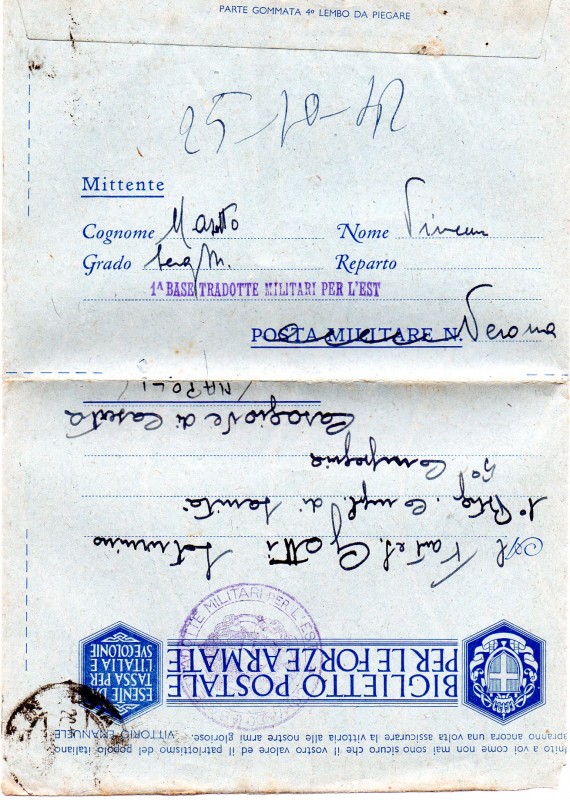 PARTE GOMMATA 4º LEMBO DA PIEGARE
25-10-42
Mittente
Cognome Masetto Nome
Grado Serg. M. Reparto
1ª BASE TRADOTTE MILITARI PER L'EST
POSTA MILITARE N. Verona
Unito a voi come non mai non mai sono sicuro che il vostro valore ed il patriottismo del popolo italiano
sapranno ancora una volta assicurare la vittoria alle nostre armi gloriose. VITTORIO EMANUELE
BIGLIETTO POSTALE
PER LE FORZE ARMATE
ESENTE DA
TASSA PER
L'ITALIA E
SVE COLONIE
TRADOTTE MILITARI PER L'EST
Al Fante Gatti Saturnino
1º Btg. Compl. di Sanità
5ª Compagnia
Casagiove di Caserta
(NAPOLI)